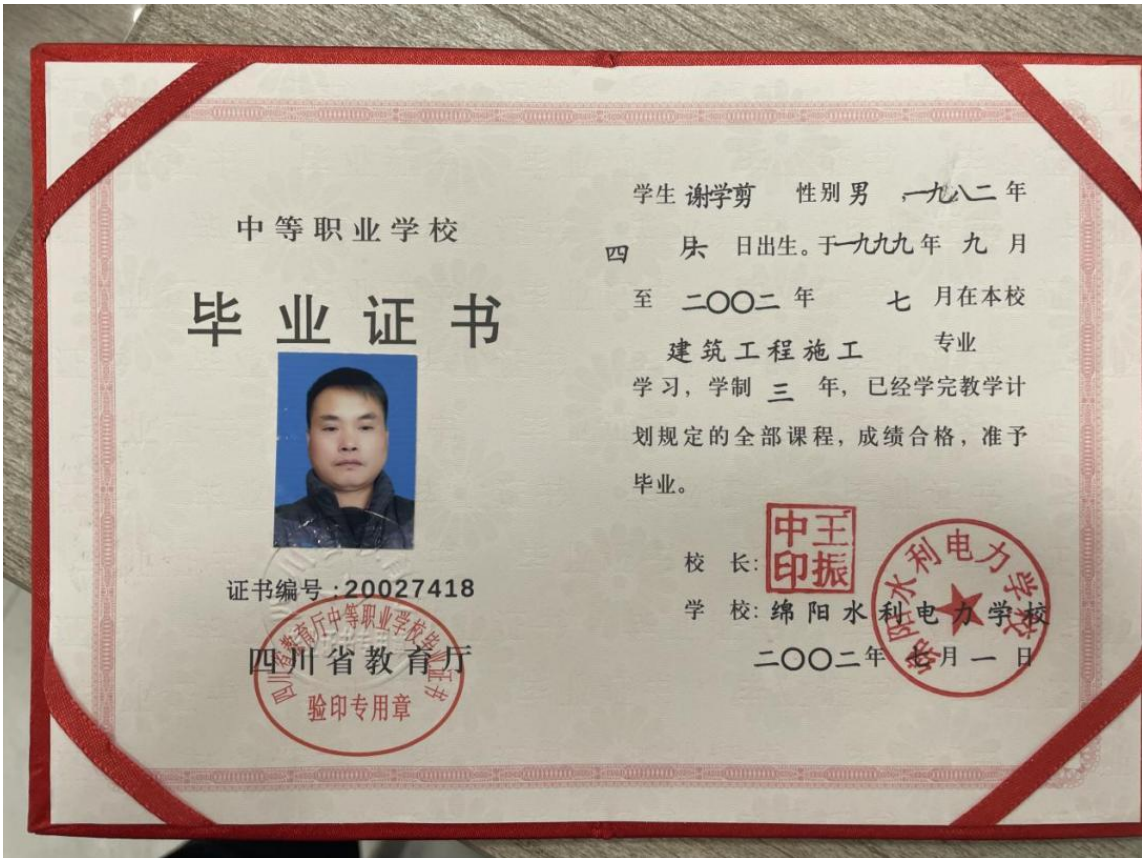 中等职业学校
毕业证书
证书编号:20027418
四川省教育厅
四川省教育厅中等职业学校毕业证书
验印专用章
学生 谢学剪 性别 男 一九八二 年
四 月 六 日出生。于 一九九九 年 九 月
至 二〇〇二 年 七 月在本校
建筑工程施工 专业
学习，学制 三 年，已经学完教学计
划规定的全部课程，成绩合格，准予
毕业。
校 长: 王振中印
学 校: 绵阳水利电力学校
二〇〇二年 七月 一 日
绵阳水利电力学校